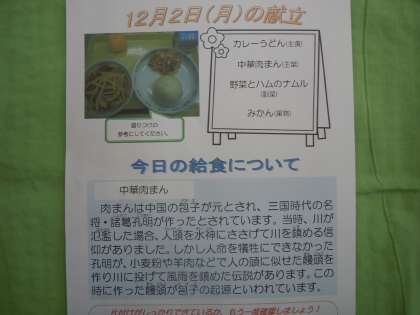 12月2日(月)の献立
カレーうどん(主食)
中華肉まん(主菜)
野菜とハムのナムル
(副菜)
みかん(果物)
盛りつけの
参考にしてください。
今日の給食について
中華肉まん
肉まんは中国の包子が元とされ、三国時代の名
将・諸葛孔明が作ったとされています。当時、川が
氾濫した場合、人頭を水神にささげて川を鎮める信
仰がありました。しかし人命を犠牲にできなかった
孔明が、小麦粉や羊肉などで人の頭に似せた饅頭を
作り川に投げて風雨を鎮めた伝説があります。この
時に作った饅頭が包子の起源といわれています。
片付けがしっかりできているか、もう一度確認しましょう!